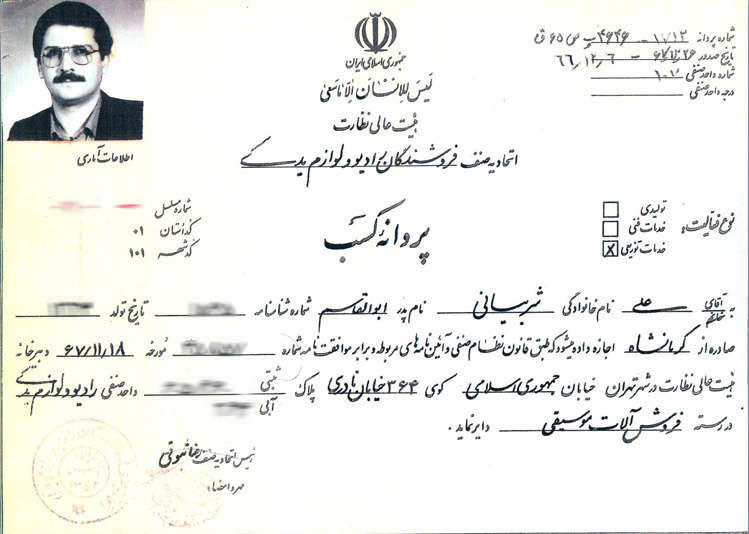 جمهوری اسلامی ایران
لَیسَ لِلاِنسانِ اِلّا ماسَعی
هیئت عالی نظارت
اتحادیه صنف فروشندگان رادیو و لوازم یدکی
شماره پروانه
تاریخ صدور
شماره واحد صنفی
درجه واحد صنفی
اطلاعات آماری
شماره مسلسل
کد استان ۰۱
کد شهر ۱۰۱
پروانهٔ کسب
نوع فعالیت:
تولیدی
خدمات فنی
خدمات توزیعی X
به آقای خانم علی نام خانوادگی شربیانی نام پدر ابوالقاسم شماره شناسنامه تاریخ تولد
صادره از کرمانشاه اجازه داده میشود که طبق قانون نظام صنفی و آئین نامه های مربوطه و برابر موافقت نامه شماره مورخه ۶۷/۱۱/۱۸ دبیرخانه
هیئت عالی نظارت در شهر تهران خیابان جمهوری اسلامی کوی ۳۶۴ خیابان نادری پلاک ثبتی آبی واحد صنفی رادیو و لوازم یدکی
در رسته فروش آلات موسیقی دایر نماید.
رئیس اتحادیه صنف رضا ثبوتی
مهر و امضاء